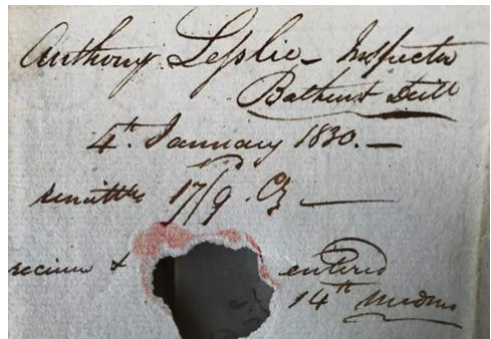 Anthony Leslie - Inspector
Bathurst Still
4th. January 1830. —
remitts 17/9. Cy —
received & entered
14th